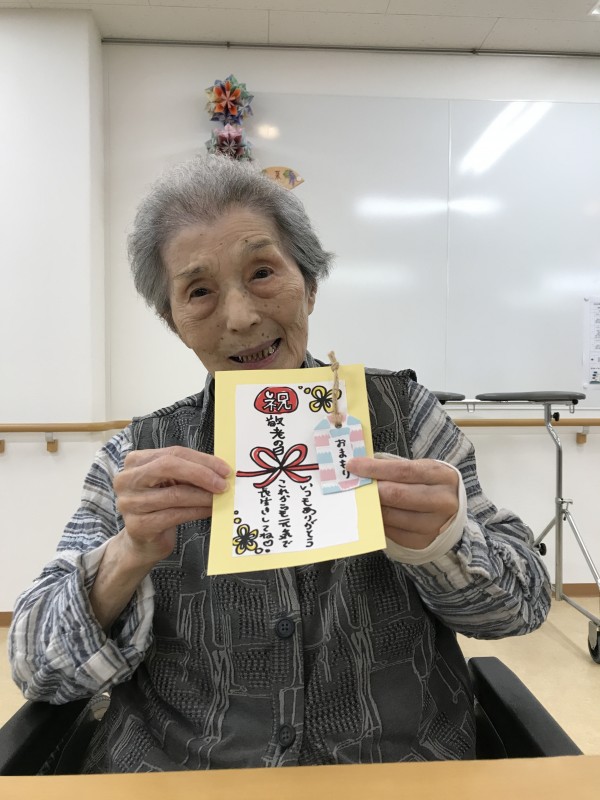 祝
敬老の日
いつもありがとう
これからも元気で
長生きしてね
おまもり